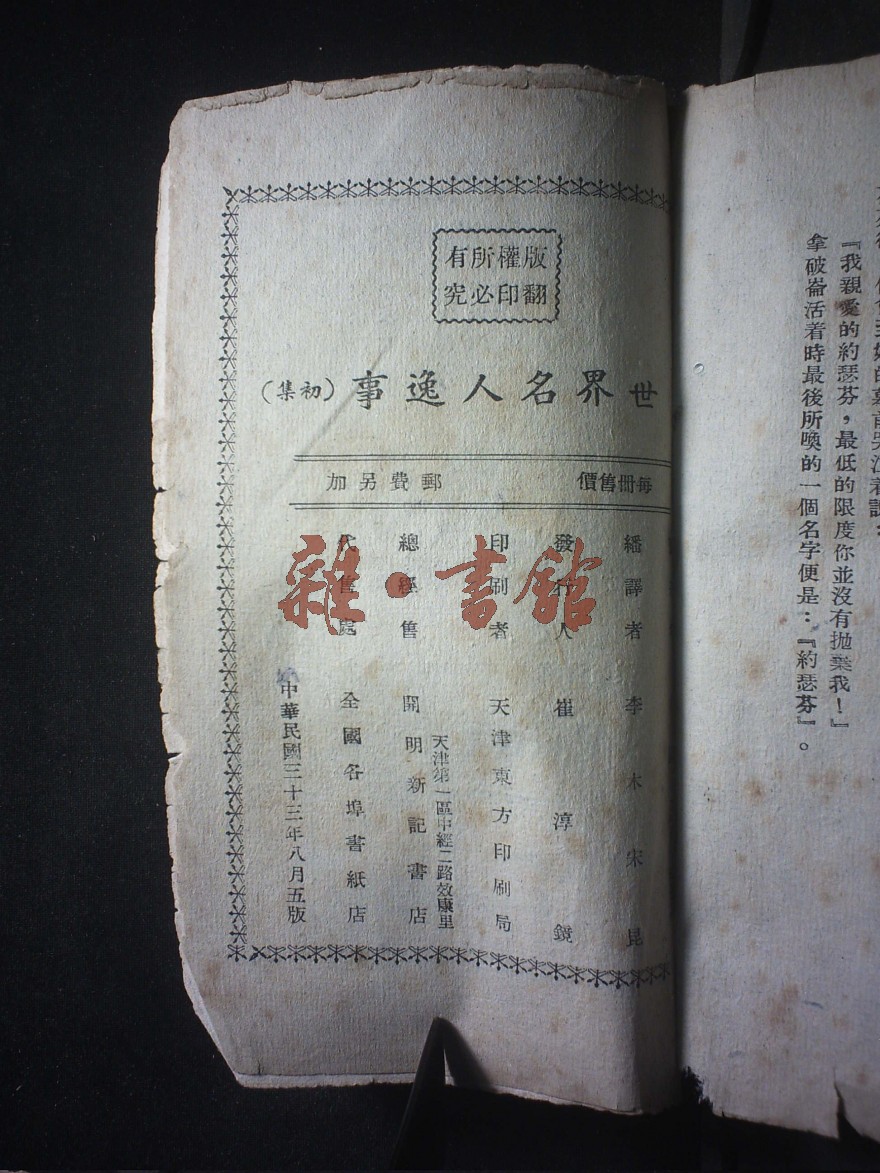 『我親愛的約瑟芬，最低的限度你並沒有拋棄我！』
拿破崙活着時最後所喚的一個名字便是：『約瑟芬』。
版權所有
翻印必究
世界名人逸事（初集）
每冊售價 郵費另加
繙譯者 李木 宋昆
發行人 崔淳鏡
印刷者 天津東方印刷局
天津第一區中經二路效康里
總經售 開明新記書店
代售處 全國各埠書紙店
中華民國三十三年八月五版
雜·書館